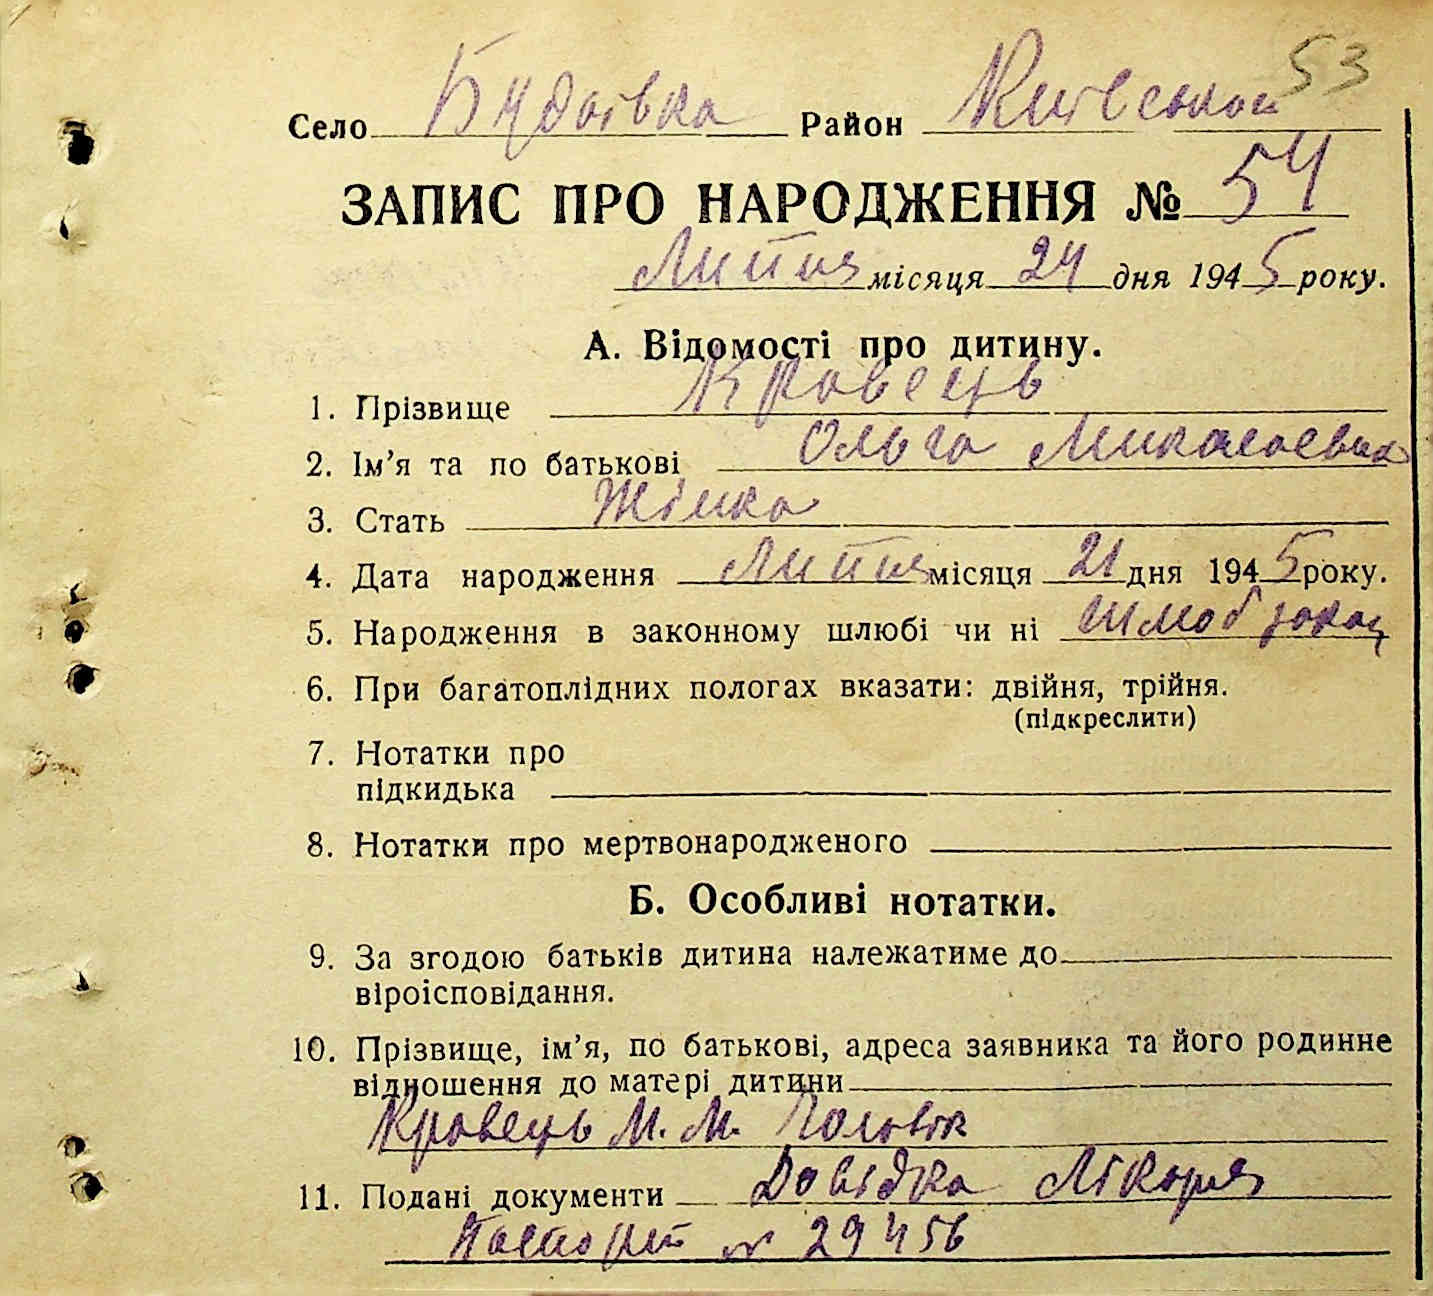 53
Село Будаївка Район Київський
ЗАПИС ПРО НАРОДЖЕННЯ № 54
Липня місяця 24 дня 1945 року.
А. Відомості про дитину.
1. Прізвище Кравець
2. Ім’я та по батькові Ольга Миколаевна
3. Стать Жінка
4. Дата народження Липня місяця 21 дня 1945 року.
5. Народження в законному шлюбі чи ні
6. При багатоплідних пологах вказати: двійня, трійня.
(підкреслити)
7. Нотатки про
підкидька
8. Нотатки про мертвонародженого
Б. Особливі нотатки.
9. За згодою батьків дитина належатиме до
віроісповідання.
10. Прізвище, ім’я, по батькові, адреса заявника та його родинне
відношення до матері дитини
Кравець М. М. Чоловік
11. Подані документи Довідка Лікаря
Паспорт № 29456